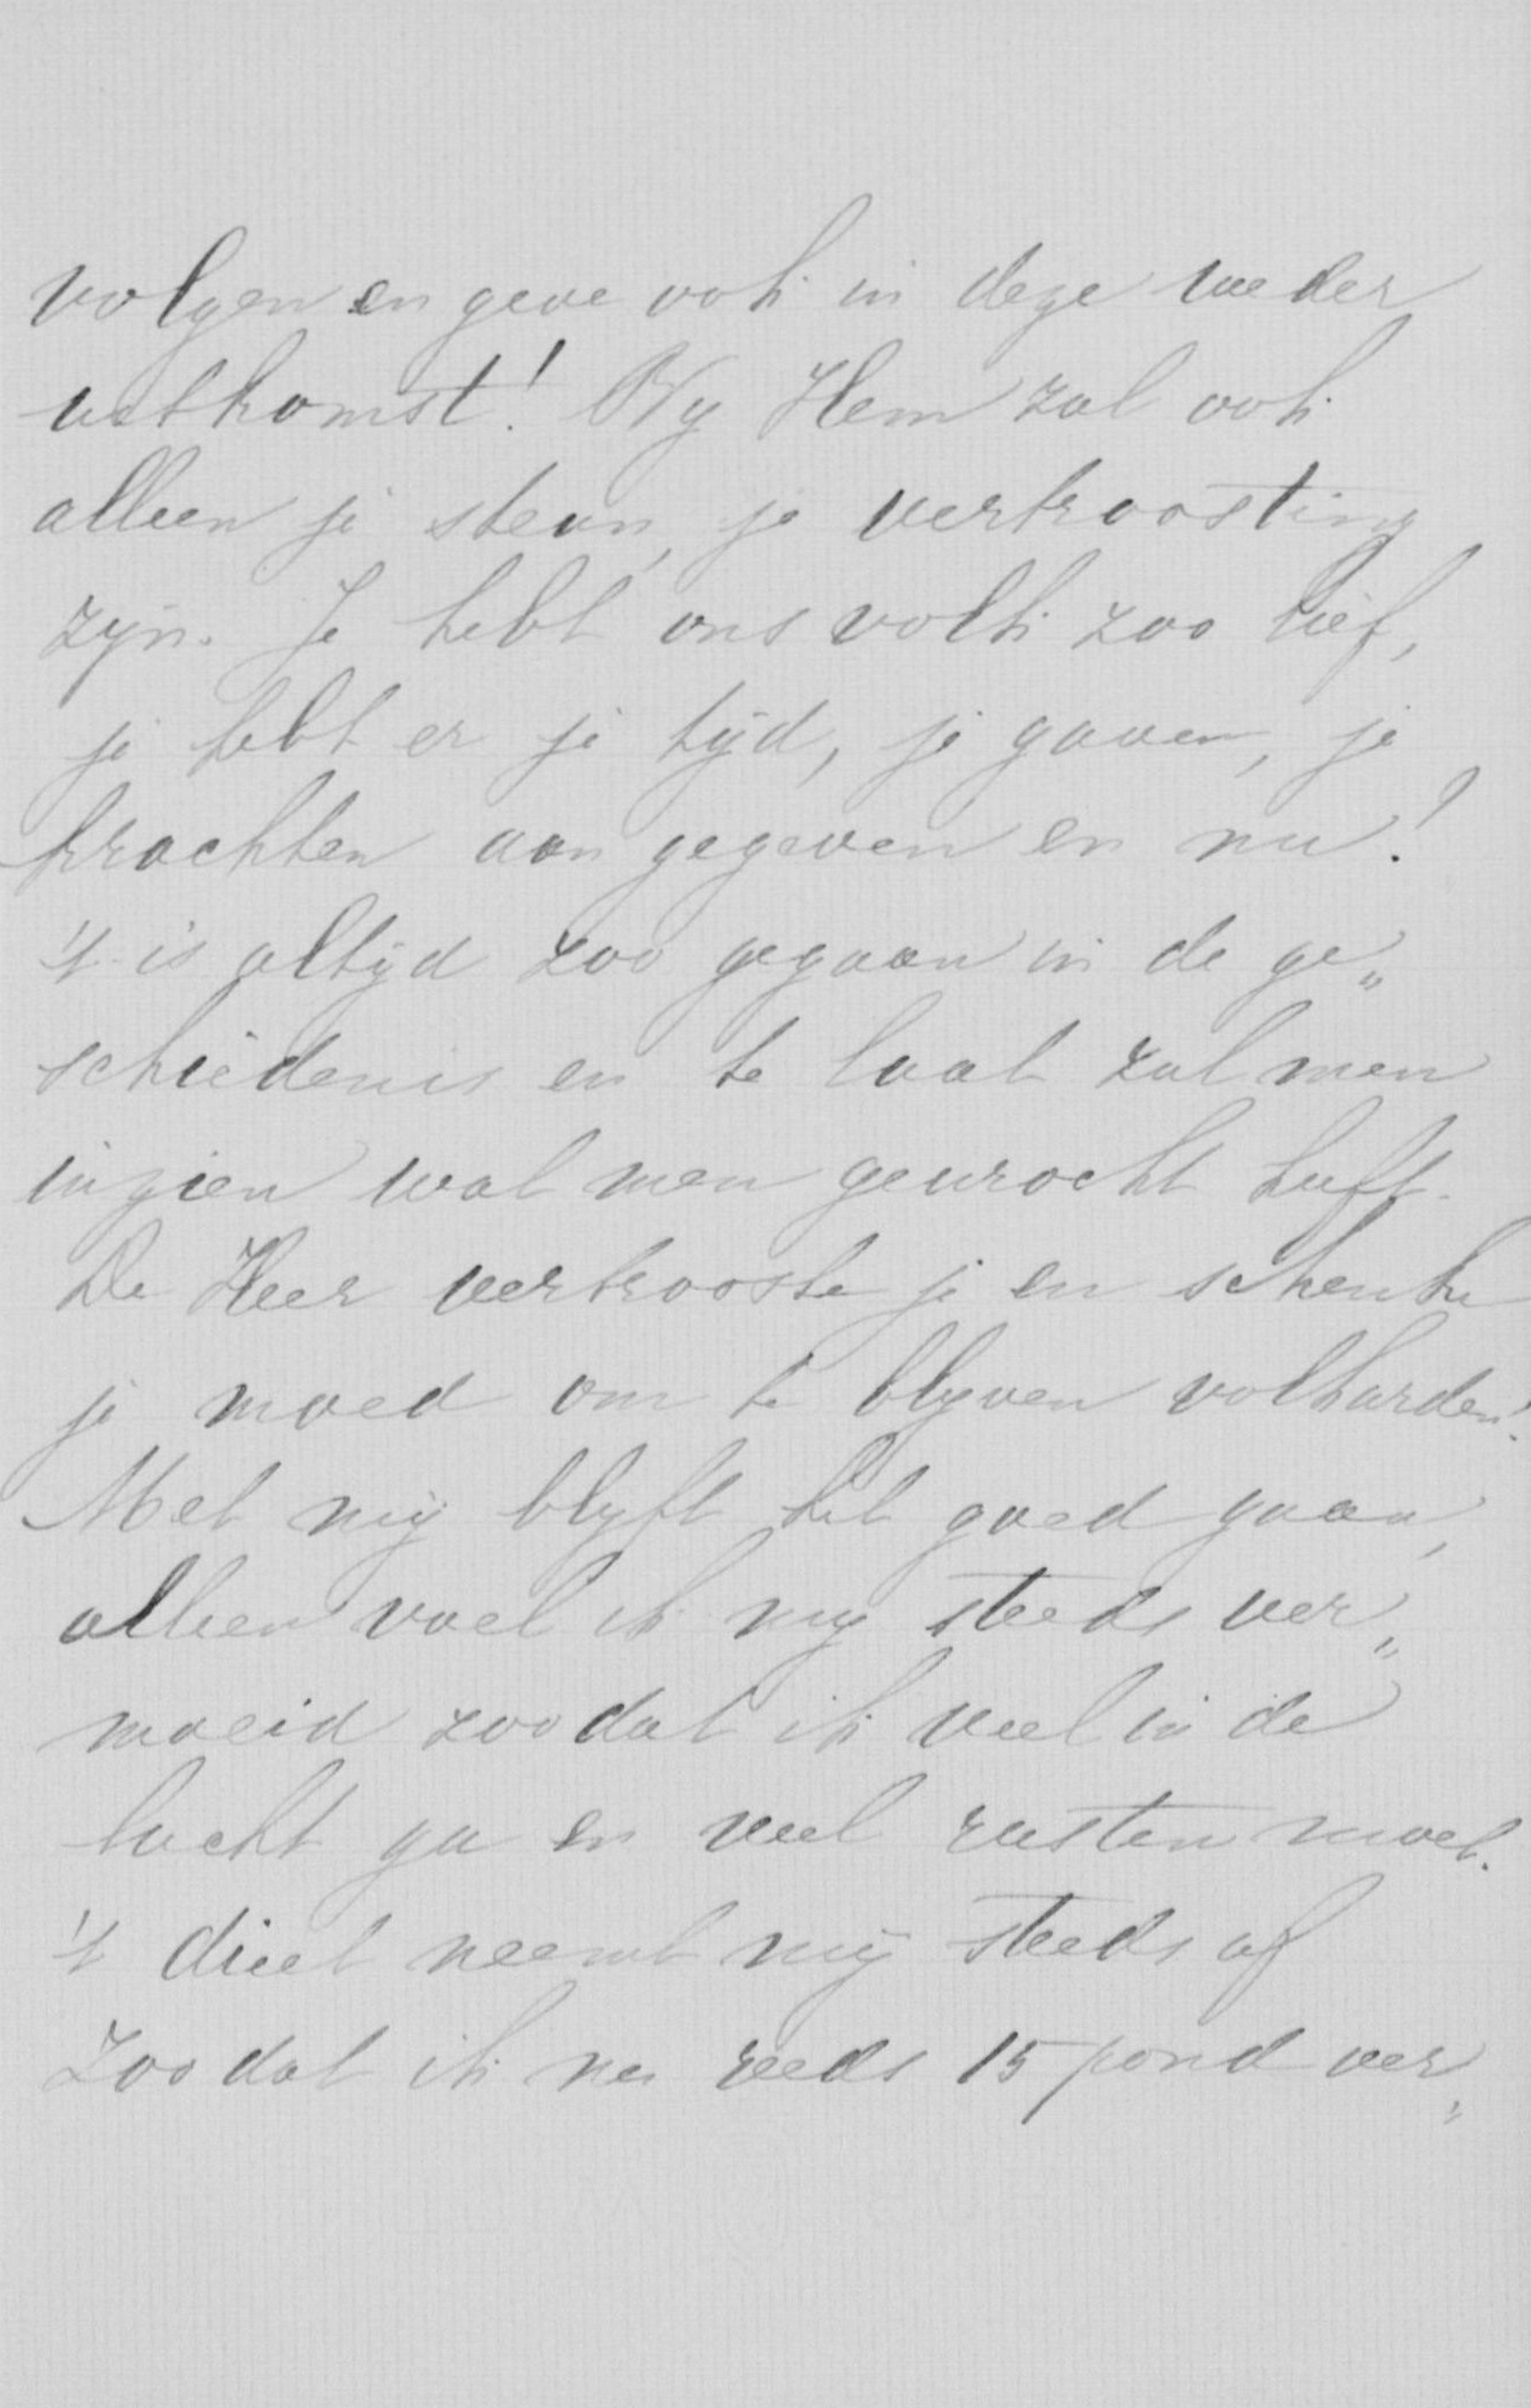 volgen en geve ook in deze weder
uitkomst! By Hem zal ook
alleen je steun, je vertroosting
zyn. Je hebt ons volk zoo lief,
je hebt er je tyd, je gaven, je
krachten aan gegeven en nu!
't is altyd zoo gegaan in de ge„
schiedenis en te laat zal men
inzien wat men gewrocht heeft.
De Heer vertrooste je en schenke
je moed om te blyven volharden!
Met my blyft het goed gaan,
alleen voel ik my steeds ver„
moeid zoodat ik veel in de
lucht ga en veel rusten moet.
't dieet neemt my steeds af
Zoo dat ik nu reeds 15 pond ver„